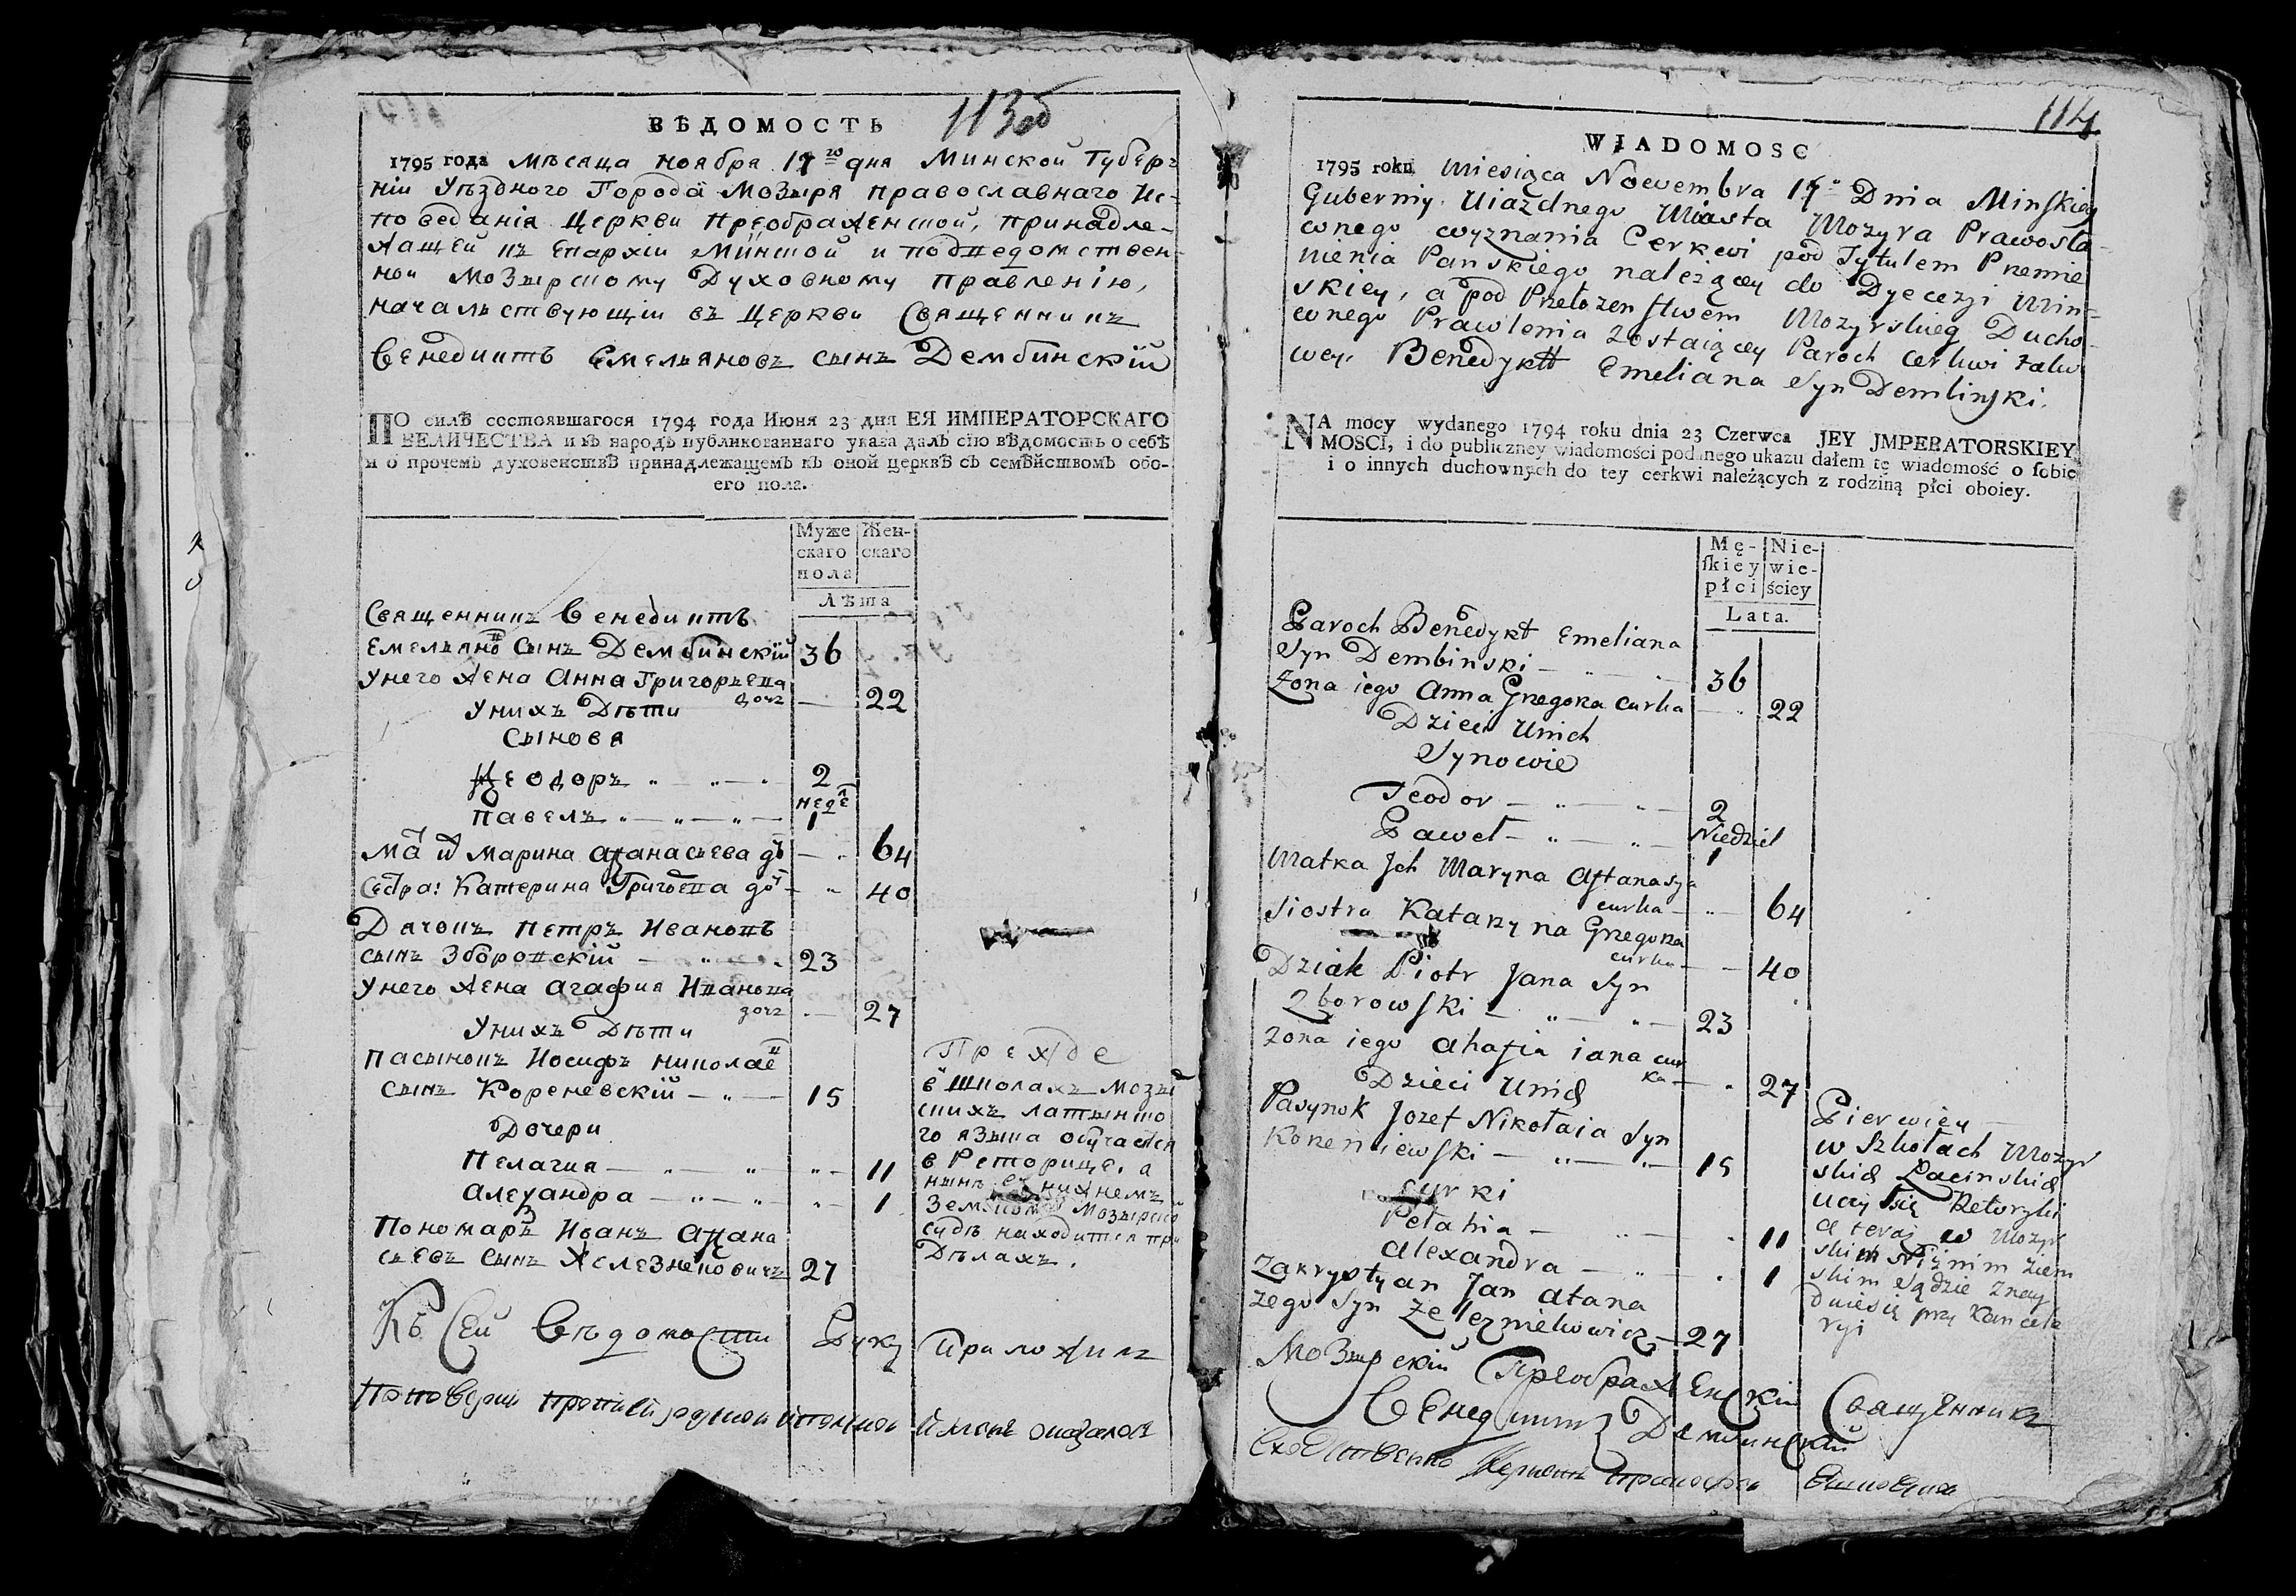 113об
ВѢДОМОСТЬ
1795 года мѣсяца ноября 17го дня Минской Губер-
ніи Уѣздного Города Мозыря православнаго Ис-
поведанія Церкви Преображенской, принадле-
жащей къ Епархіи Минской и подведомствен-
ной Мозырскому Духовному Правленію,
начальствующій въ Церкви Священникъ
Венедиктъ Емельяновъ сынъ Дембинскій
ПО силѣ состоявшагося 1794 года Июня 23 дня ЕЯ ИМПЕРАТОРСКАГО
ВЕЛИЧЕСТВА и въ народъ публикованнаго указа далъ сію вѣдомость о себѣ
и о прочемъ духовенствѣ принадлежащемъ къ оной церквѣ съ семѣйствомъ обо-
его пола.
Муже Жен-
скаго скаго
пола
Лѣта
Священникъ Венедиктъ
Емельяно в сынъ Дембинскій 36
У него жена Анна Григорьева
дочь — 22
У нихъ Дѣти
Сынова
Ѳеодоръ „ — „ — „ 2
недел
Павелъ „ — „ — „ — 1
Мат их Марина Афанасьева дъ — „ 64
Сестра: Катерина Григоева дот — „ 40
Дячокъ Петръ Ивановъ
сынъ Зборовскій — „ — „ 23
У него жена Агафия Иванова
дочь — 27
У нихъ Дѣти
Пасынокъ Иосифъ Николае в
сынъ Кореневскій — „ — 15
Дочери
Пелагия — „ — „ „ — 11
Алеѯандра — „ — „ „ — 1
Пономаръ Иванъ Афана
сьевъ сынъ Железняковичъ 27
Прежде
в школахъ Мозыр
скихъ латынско
го языка обучался
в Реторице, а
нынѣ в нижнемъ
Земском Мозырско
судѣ находится при
Дѣлахъ.
Къ Сей Вѣдомости Руку Приложилъ
114
WIADOMOSC
1795 roku Miesiąca Noewembra 17° Dnia Minskiey
Guberniy Uiazdnego Miasta Mozyra Prawosła-
wnego wyznania Cerkwi pod Tytulem Przemie
nienia Panskiego należącey do Dyecezji Min-
skiey, a pod Przełożenstwem Mozyrskieg Ducho
wnego Prawlenia zostaiącey Paroch cerkwi
wey, Benedykt Emeliana Syn Dembinski.
NA mocy wydanego 1794 roku dnia 23 Czerwca JEY JMPERATORSKIEY
MOSCI, i do publiczney wiadomości podanego ukazu dałem tę wiadomość o sobie
i o innych duchownych do tey cerkwi należących z rodziną płci oboiey.
Mę- Nie-
skiey wie-
płci ściey
Lata.
Paroch Benedykt Emeliana
Syn Dembinski — 36
Zona iego Anna Grzegorza curka — „ 22
Dzieci Unich
Synowie
Teodor — „ — „ — 2
Paweł — „ — „ — Niedziel
1
Matka Jch Maryna Aftanasya
curka — „ — 64
Siostra Katarzyna Grzegorza
curka — — 40
Dziak Piotr Jana Syn
Zborowski — „ — „ — 23
Zona iego Ahafia iana cur
ka — „ 27
Dzieci Unich
Pasynok Jozef Nikołaia Syn
Korzeniewski — „ — „ — 15
Curki
Pełahia — „ — 11
Alexandra — „ — 1
Zakrystyan Jan Atana
zego Syn Zelezniekowicz — 27
Pierwiey —
w Szkołach Mozyr
skich Łacinskich
uczył się Retoryki
a teraz w Mozyr
skim Niznim Ziem
skim Sądzie znay
duiesię przy Kancela
ryi
Мозырскій Преображенскій Священникъ
Венедиктъ Дембинскій